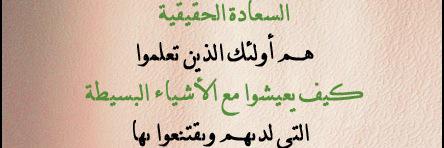 السعادة الحقيقية
هم أولئك الذين تعلموا
كيف يعيشوا مع الأشياء البسيطة
التي لديهم ويقتنعوا بها